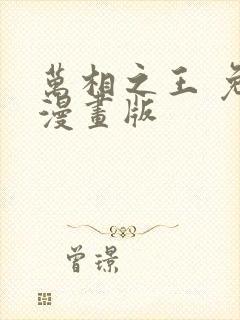 萬相之王
漫畫版
曾璟